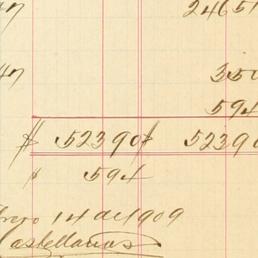 2465
350
594
$ 52390 $ 5239
$ 594
14 de 1909
Castellanos